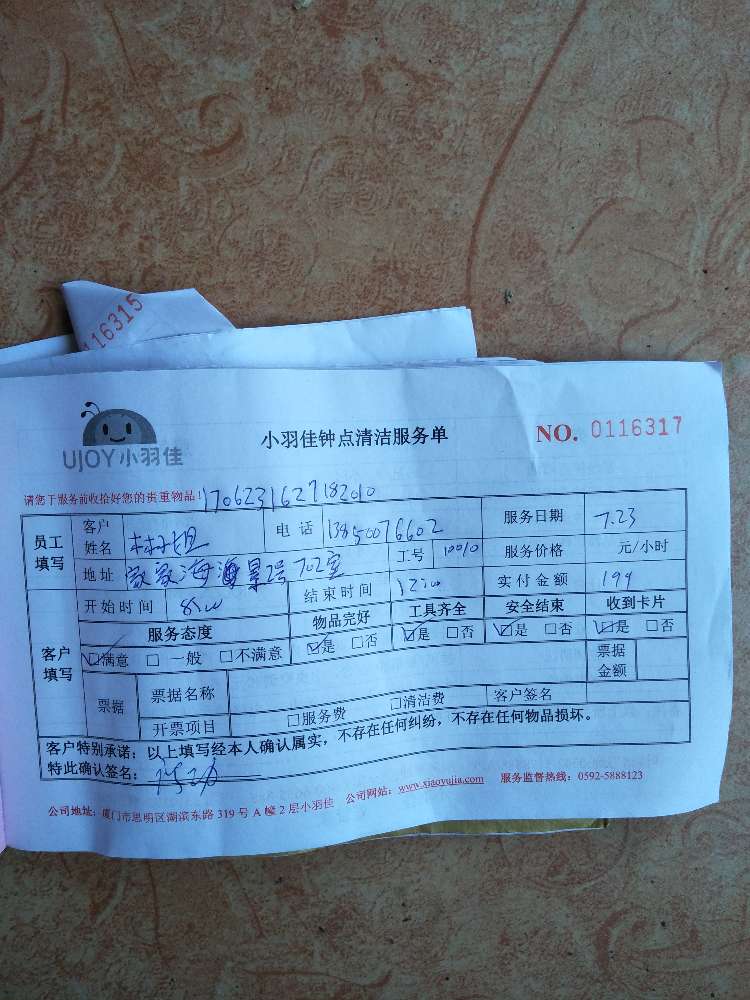 116315
UJOY小羽佳
小羽佳钟点清洁服务单
NO. 0116317
请您于服务前收拾好您的贵重物品!
1706231627182010
员工填写 客户姓名 林姐 电话 13850076602 服务日期 7.23
地址 家家海海景2号702室 工号 10010 服务价格 元/小时
客户填写 开始时间 8:00 结束时间 12:00 实付金额 194
服务态度 物品完好 工具齐全 安全结束 收到卡片
满意 □ 一般 □不满意 是 □否 是 □否 是 □否 是 □否
票据 票据名称 票据金额
开票项目 □服务费 □清洁费 客户签名
客户特别承诺:以上填写经本人确认属实,不存在任何纠纷,不存在任何物品损坏。
特此确认签名:
公司地址:厦门市思明区湖滨东路 319 号 A 幢 2 层小羽佳 公司网站:www.xiaoyujia.com 服务监督热线:0592-5888123